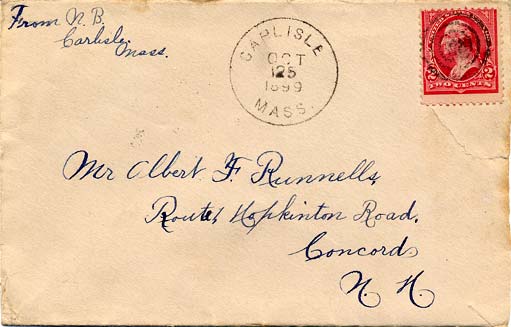 From N. B.
Carlisle,
Mass.
CARLISLE
OCT
125
1899
MASS.
2 2
TWO CENTS
Mr Albert F. Runnells,
Route 1, Hopkinton Road,
Concord
N. H.